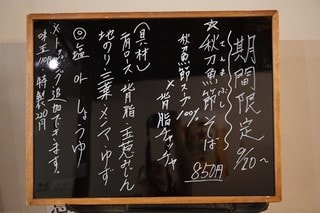 期間限定
9/20〜
さんまぶし
☆秋刀魚節そば
850円
秋刀魚節スープ100%
×背脂チャッチャ
(具材)
肩ロース・背脂・玉葱
地のり・三葉・メンマ・ゆず
◎塩 or しょうゆ
※トッピング追加できます。
味玉100円 特製220円